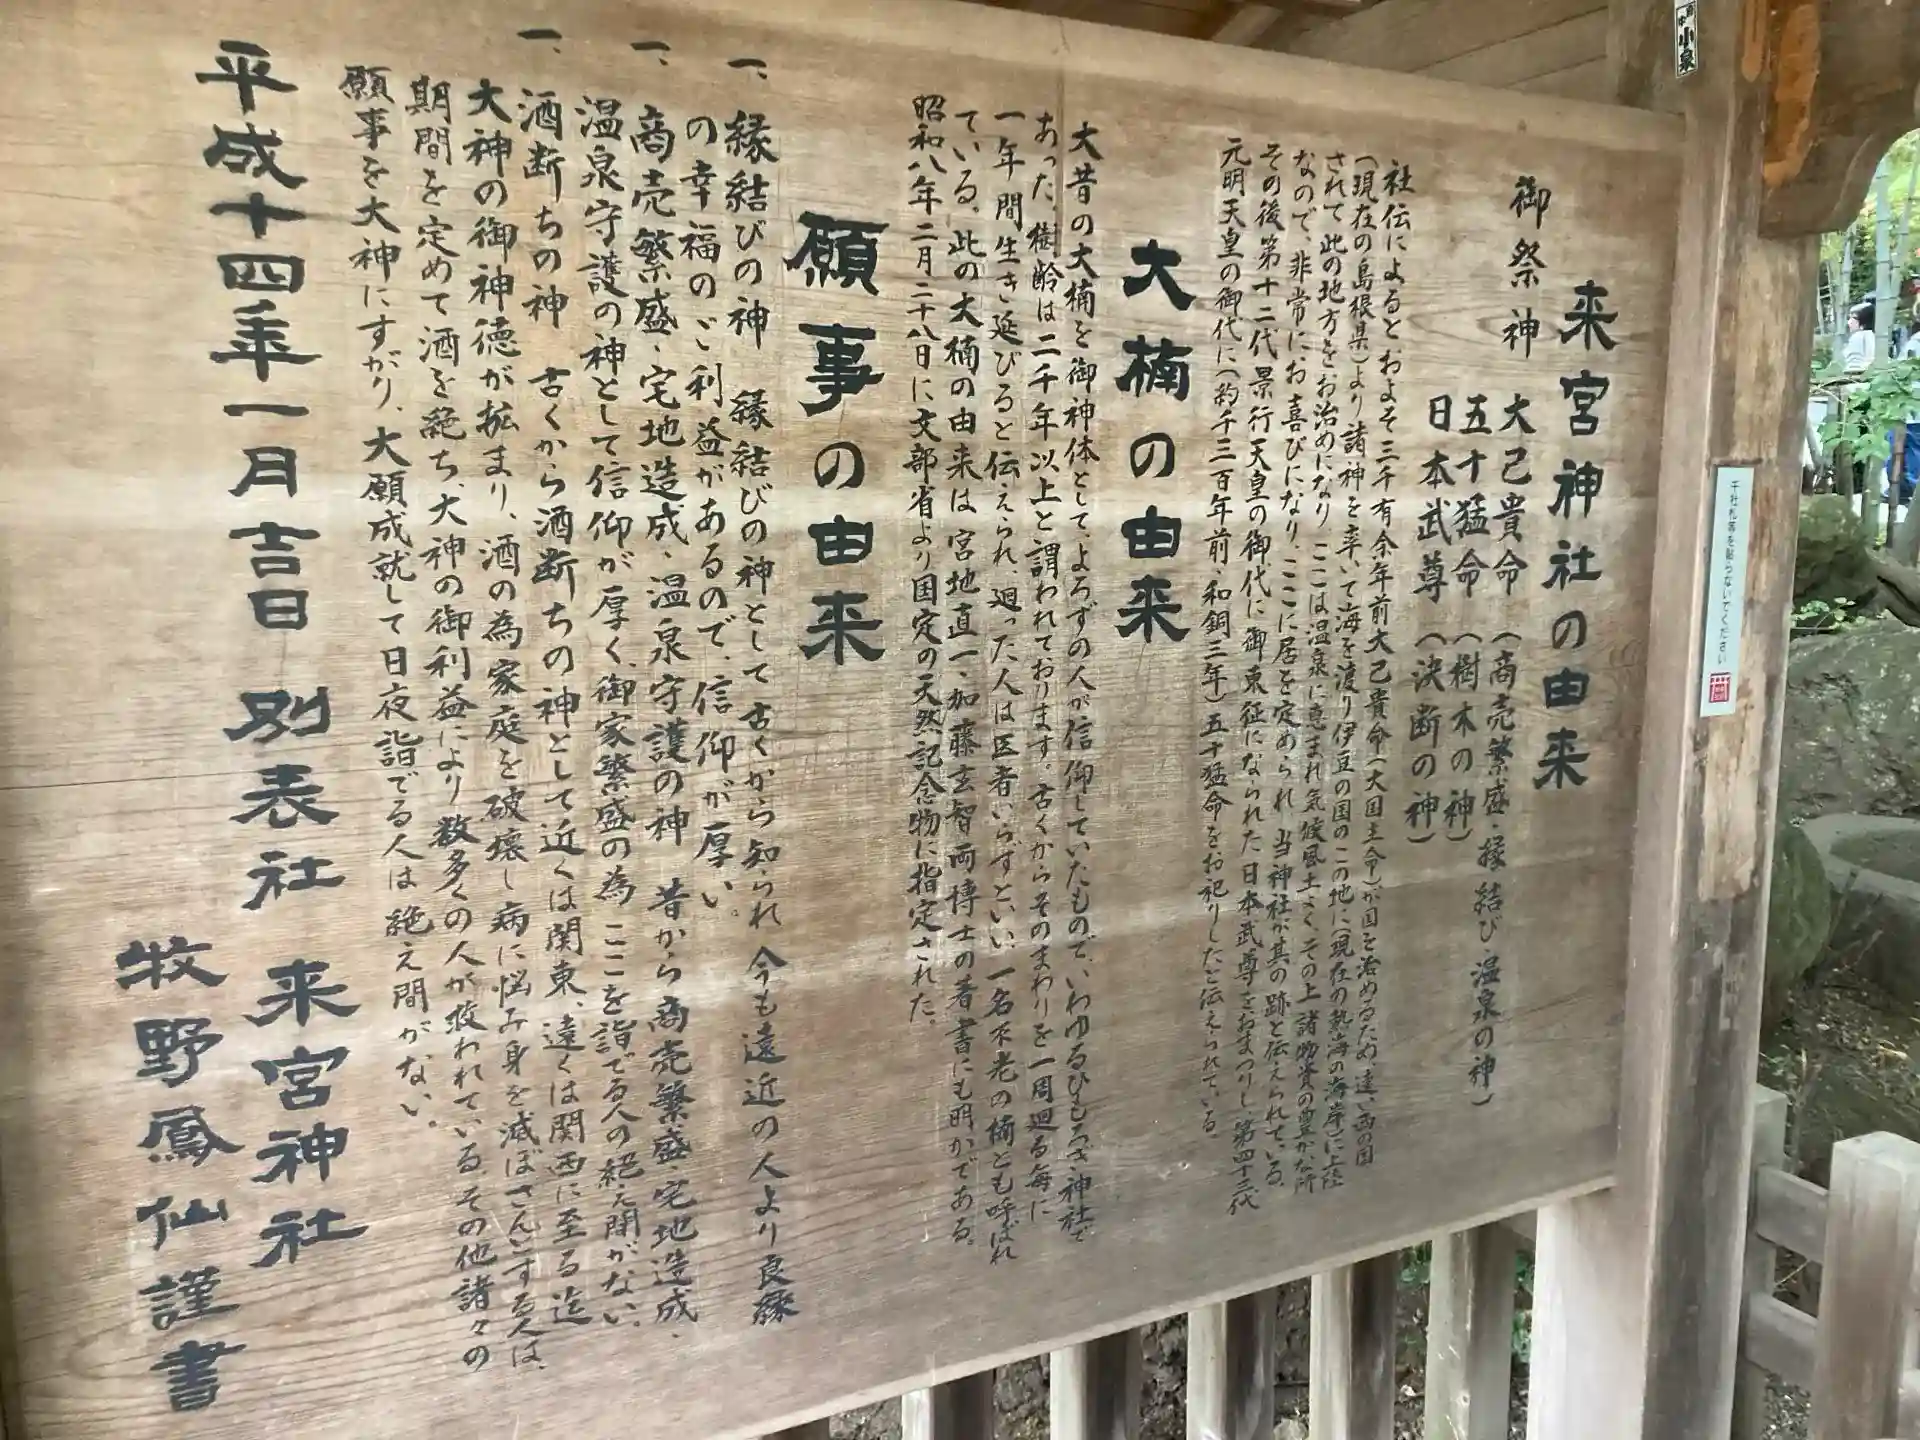 来宮神社の由来
御祭神
大己貴命（商売繁盛・縁結び・温泉の神）
五十猛命（樹木の神）
日本武尊（決断の神）
社伝によるとおよそ三千有余年前大己貴命（大国主命）が国を治めるため、遠い西の国
（現在の島根県）より諸神を率いて海を渡り伊豆の国のこの地に（現在の熱海の海岸）に上陸
されて此の地方をお治めになり、ここは温泉に恵まれ気候風土よく、その上諸物資の豊かな所
なので、非常にお喜びになり、ここに居を定められ、当神社が其の跡と伝えられている。
その後第十二代景行天皇の御代に御東征になられた日本武尊をおまつりし、第四十三代
元明天皇の御代に（約千三百年前・和銅三年）五十猛命をお祀りしたと伝えられている。
大楠の由来
大昔の大楠を御神体として、よろずの人が信仰していたもので、いわゆるひもろぎ神社で
あった。樹齢は二千年以上と謂われております。古くからそのまわりを一周廻る毎に
一年間生き延びると伝えられ、廻った人は医者いらずといい、一名不老の楠とも呼ばれ
ている。此の大楠の由来は宮地直一、加藤玄智両博士の著書にも明かである。
昭和八年二月二十八日に文部省より国定の天然記念物に指定された。
願事の由来
一、縁結びの神　縁結びの神として古くから知られ今も遠近の人より良縁
の幸福のご利益があるので、信仰が厚い。
一、商売繁盛・宅地造成・温泉守護の神　昔から商売繁盛・宅地造成・
温泉守護の神として信仰が厚く、御家繁盛の為ここを詣でる人の絶え間がない。
一、酒断ちの神　古くから酒断ちの神として近くは関東、遠くは関西に至る迄
大神の御神徳が拡まり、酒の為家庭を破壊し病に悩み身を滅ぼさんとする人は、
期間を定めて酒を絶ち、大神の御利益により数多くの人が救われている。その他諸々の
願事を大神にすがり、大願成就して日夜詣でる人は絶え間がない。
平成十四年一月吉日　別表社　来宮神社
牧野鳳仙謹書
千社札等を貼らないでください
小泉